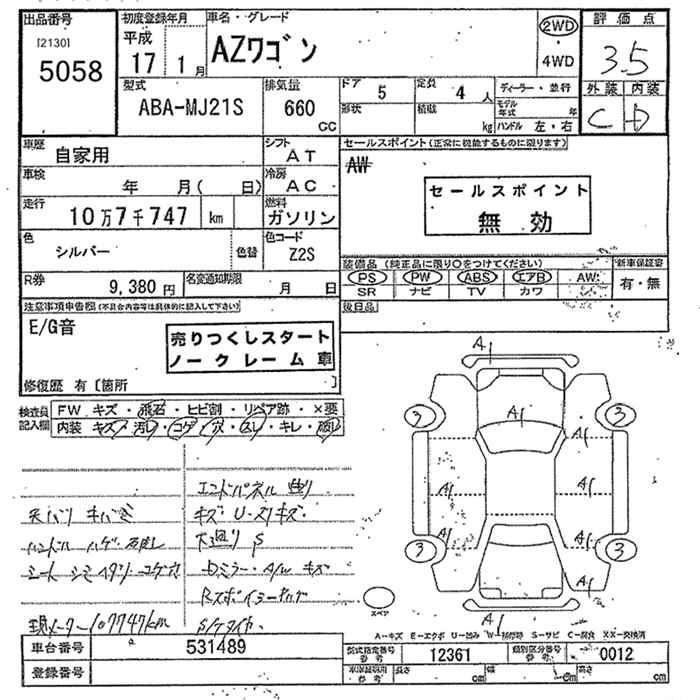 出品番号 初度登録年月 車名・グレード 2WD 評価点
[2130]
5058 平成 17 1月 AZワゴン 4WD 3.5
型式 排気量 ドア 5 定員 4人 ディーラー・並行 外装 内装
ABA-MJ21S 660 CC 形状 積載 kg モデル年式 年 C D
ハンドル 左・右
車歴 自家用 シフト AT セールスポイント(正常に機能するものに限ります)
車検 年 月( 日) 冷房 AC AW
走行 10万7千747 km 燃料 ガソリン
セールスポイント
無効
色 シルバー 色替 色コード Z2S
装備品(純正品に限り○をつけてください) 新車保証書
R券 9,380円 名変通知期限 月 日 PS PW ABS エアB AW 有・無
SR ナビ TV カワ
注意事項申告欄(不具合内容等は具体的に記入して下さい) 後日品
E/G音
売りつくしスタート
ノークレーム車
修復歴 有 〔箇所 〕
検査員記入欄 FW キズ・飛石・ヒビ割・リペア跡・×要
内装 キズ・汚レ・コゲ・穴・スレ・キレ・破レ
エンドパネル 曲り
天バリ キバミ キズ U・スリキズ
ハンドル ハゲ
シート シミ コゲ穴
現メーター107747km
A1
A1
3 3
A1 A1
A1 A1
3 3
A1
スペア
A-キズ E-エクボ U-凹み W-補修跡 S-サビ C-腐食 XX-交換済
車台番号 531489 型式指定番号 参考 12361 類別区分番号 参考 0012
登録番号 車庫証明用 参考 長さ cm 幅 cm 高さ cm